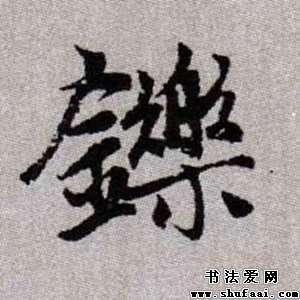 鑠
书法爱网
www.shufaai.com